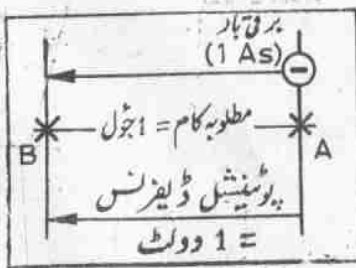 برقی بار
(1 As)
−
B مطلوبہ کام = 1 جُول A
پوٹینشل ڈیفرنس
= 1 وولٹ